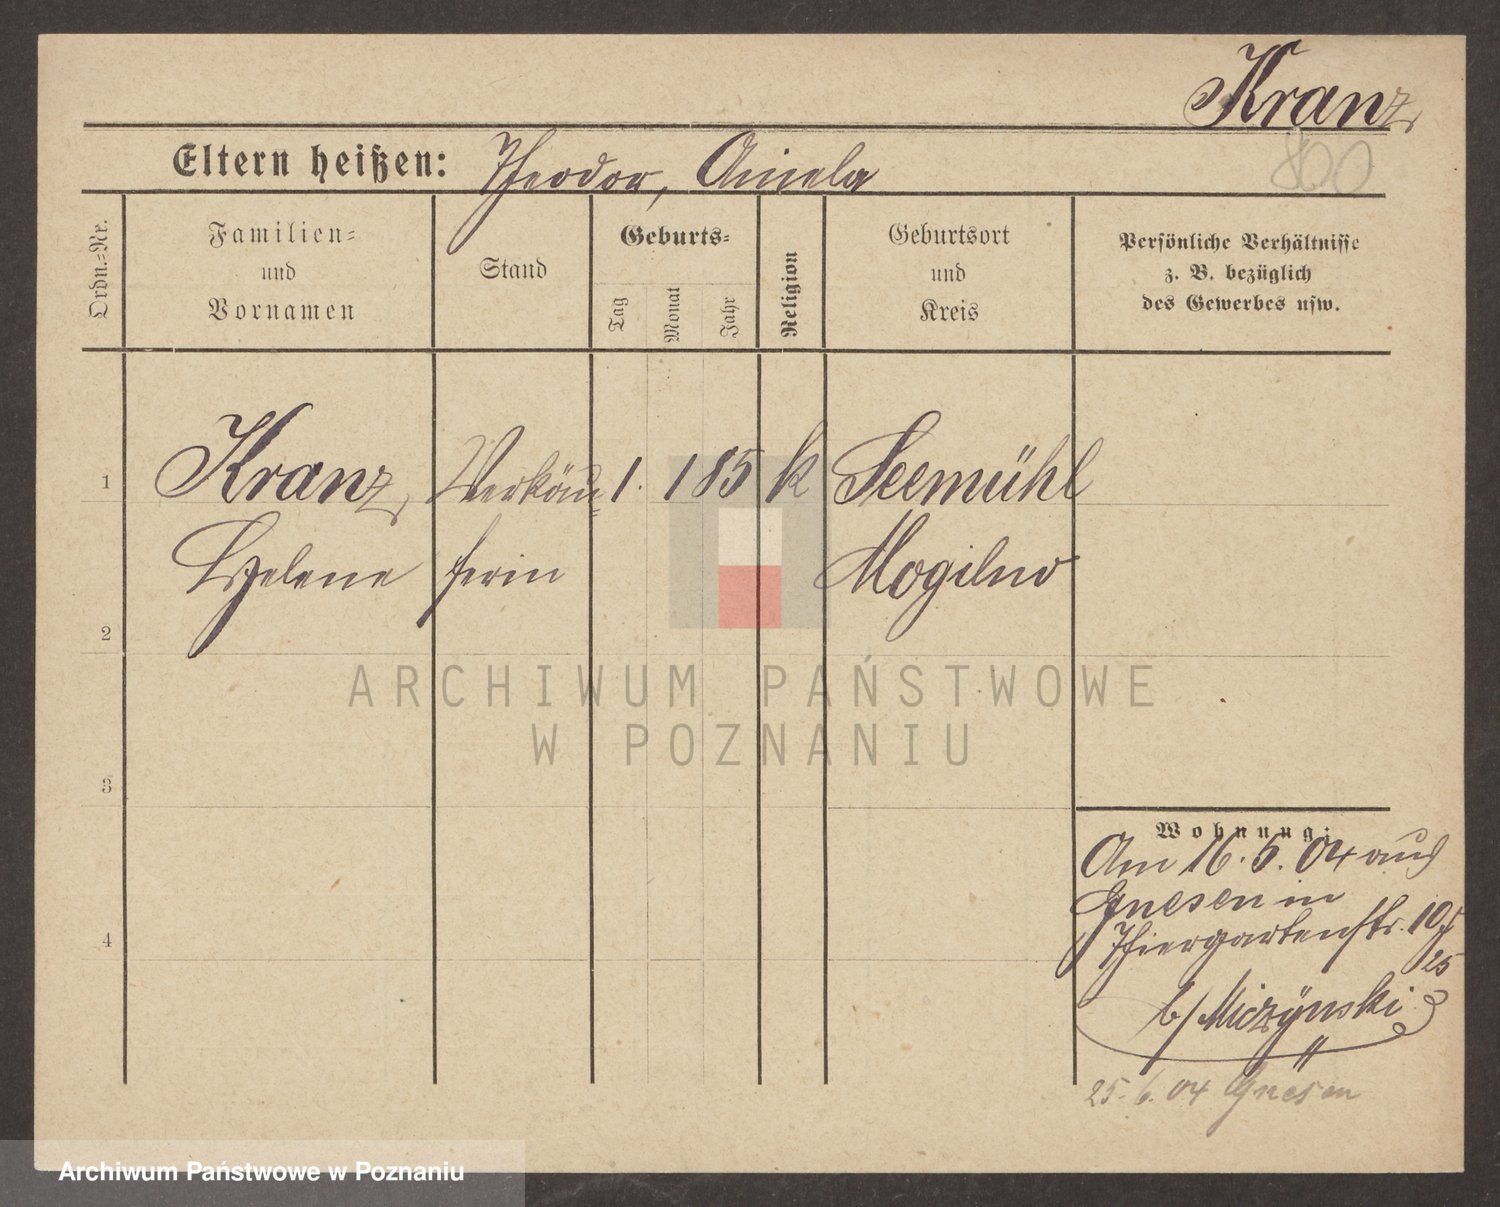 Kranz
800
Eltern heißen: Theodor, Aniela
Ordn.=Nr.
Familien=
und
Vornamen
Stand
Geburts=
Tag
Monat
Jahr
Religion
Geburtsort
und
Kreis
Persönliche Verhältnisse
z. B. bezüglich
des Gewerbes usw.
1 Kranz, Verkäu= 1. 1 85 k Seemühl
Helene ferin Mogilno
2
ARCHIWUM PAŃSTWOWE
W POZNANIU
3
Wohnung:
Am 16. 5. 04 aus
Gnesen in
4
Thiergartenstr. 10
25
b/
25. 6. 04 Gnesen
Archiwum Państwowe w Poznaniu